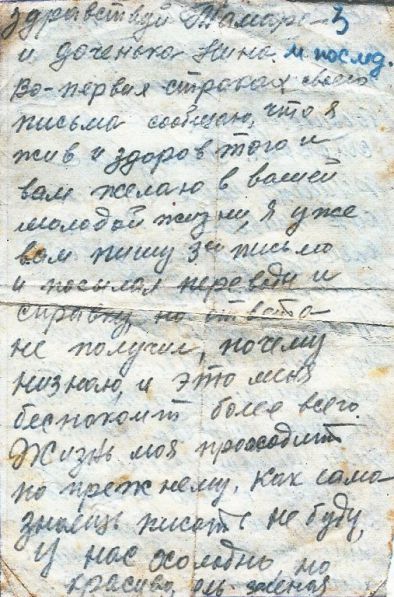 здравствуй Тамара 3
и доченька Нина. и послед.
Во-первых строках своего
письма сообщаю, что я
жив и здоров того и
вам желаю в вашей
молодой жизни, я уже
вам пишу 3и письмо
и посылал переводы и
справку, но ответа
не получил, почему
низнаю, и это меня
беспокоит более всего.
Жизнь моя проходит
по прежнему, как сама
знаешь писать не буду,
У нас холодно но
красиво, ель зеленая